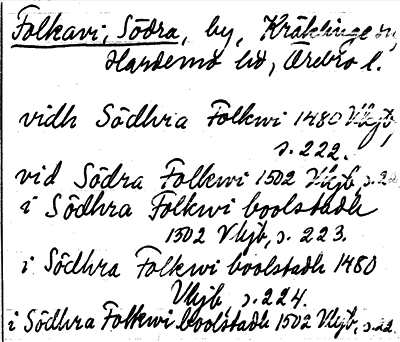 Folkavi, Södra, by, Kräklinge
Hardemo hd, Örebro l.
vidh Södhra Folkwi 1480 Vkjb,
s. 222.
vid Södra Folkwi 1502 Vkjb, s. 22
i Södhra Folkwi boolstadh
1502 Vkjb, s. 223.
i Södhra Folkwi boolstadh 1480
Vkjb, s. 224.
i Södhra Folkwi boolstadh 1502 Vkjb, s. 22